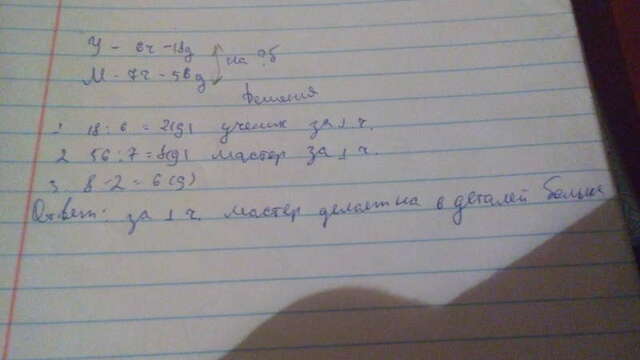 У - 6ч - 18д
М - 7ч - 56д
на ? б
Решения
1 18 : 6 = 3(д) ученик за 1 ч.
2 56 : 7 = 8(д) мастер за 1 ч.
3 8 - 2 = 6 (д)
Ответ: за 1 ч. мастер делает на 6 деталей больше